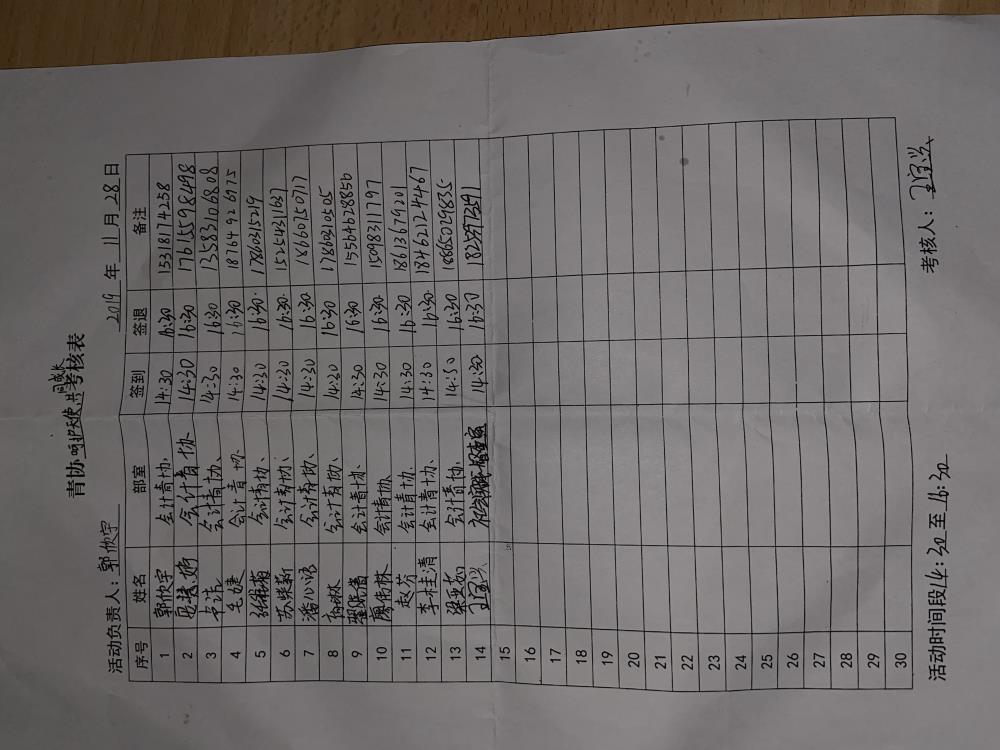 青协呵护天使 共同成长考核表
活动负责人：郭欣宇 2019 年 11 月 28 日
序号 姓名 部室 签到 签退 备注
1 郭欣宇 会计青协 14:30 16:30 15318174258
2 会计青协 14:30 16:30 17615598498
3 会计青协 14:30 16:30 13583106808
4 毛婕 会计青协 14:30 16:30 18764926975
5 会计青协 14:30 16:30 17860315219
6 苏紫薪 会计青协 14:30 16:30 15254231637
7 潘心诺 会计青协 14:30 16:30 18660750717
8 会计青协 14:30 16:30 17860210505
9 会计青协 14:30 16:30 15564628856
10 会计青协 14:30 16:30 15098311797
11 赵芬 会计青协 14:30 16:30 18613679201
12 李桂清 会计青协 14:30 16:30
13 梁亚茹 会计青协 14:30 16:30 18865029835
14 14:30 16:30
15
16
17
18
19
20
21
22
23
24
25
26
27
28
29
30
活动时间段14:30 至 16:30 考核人：